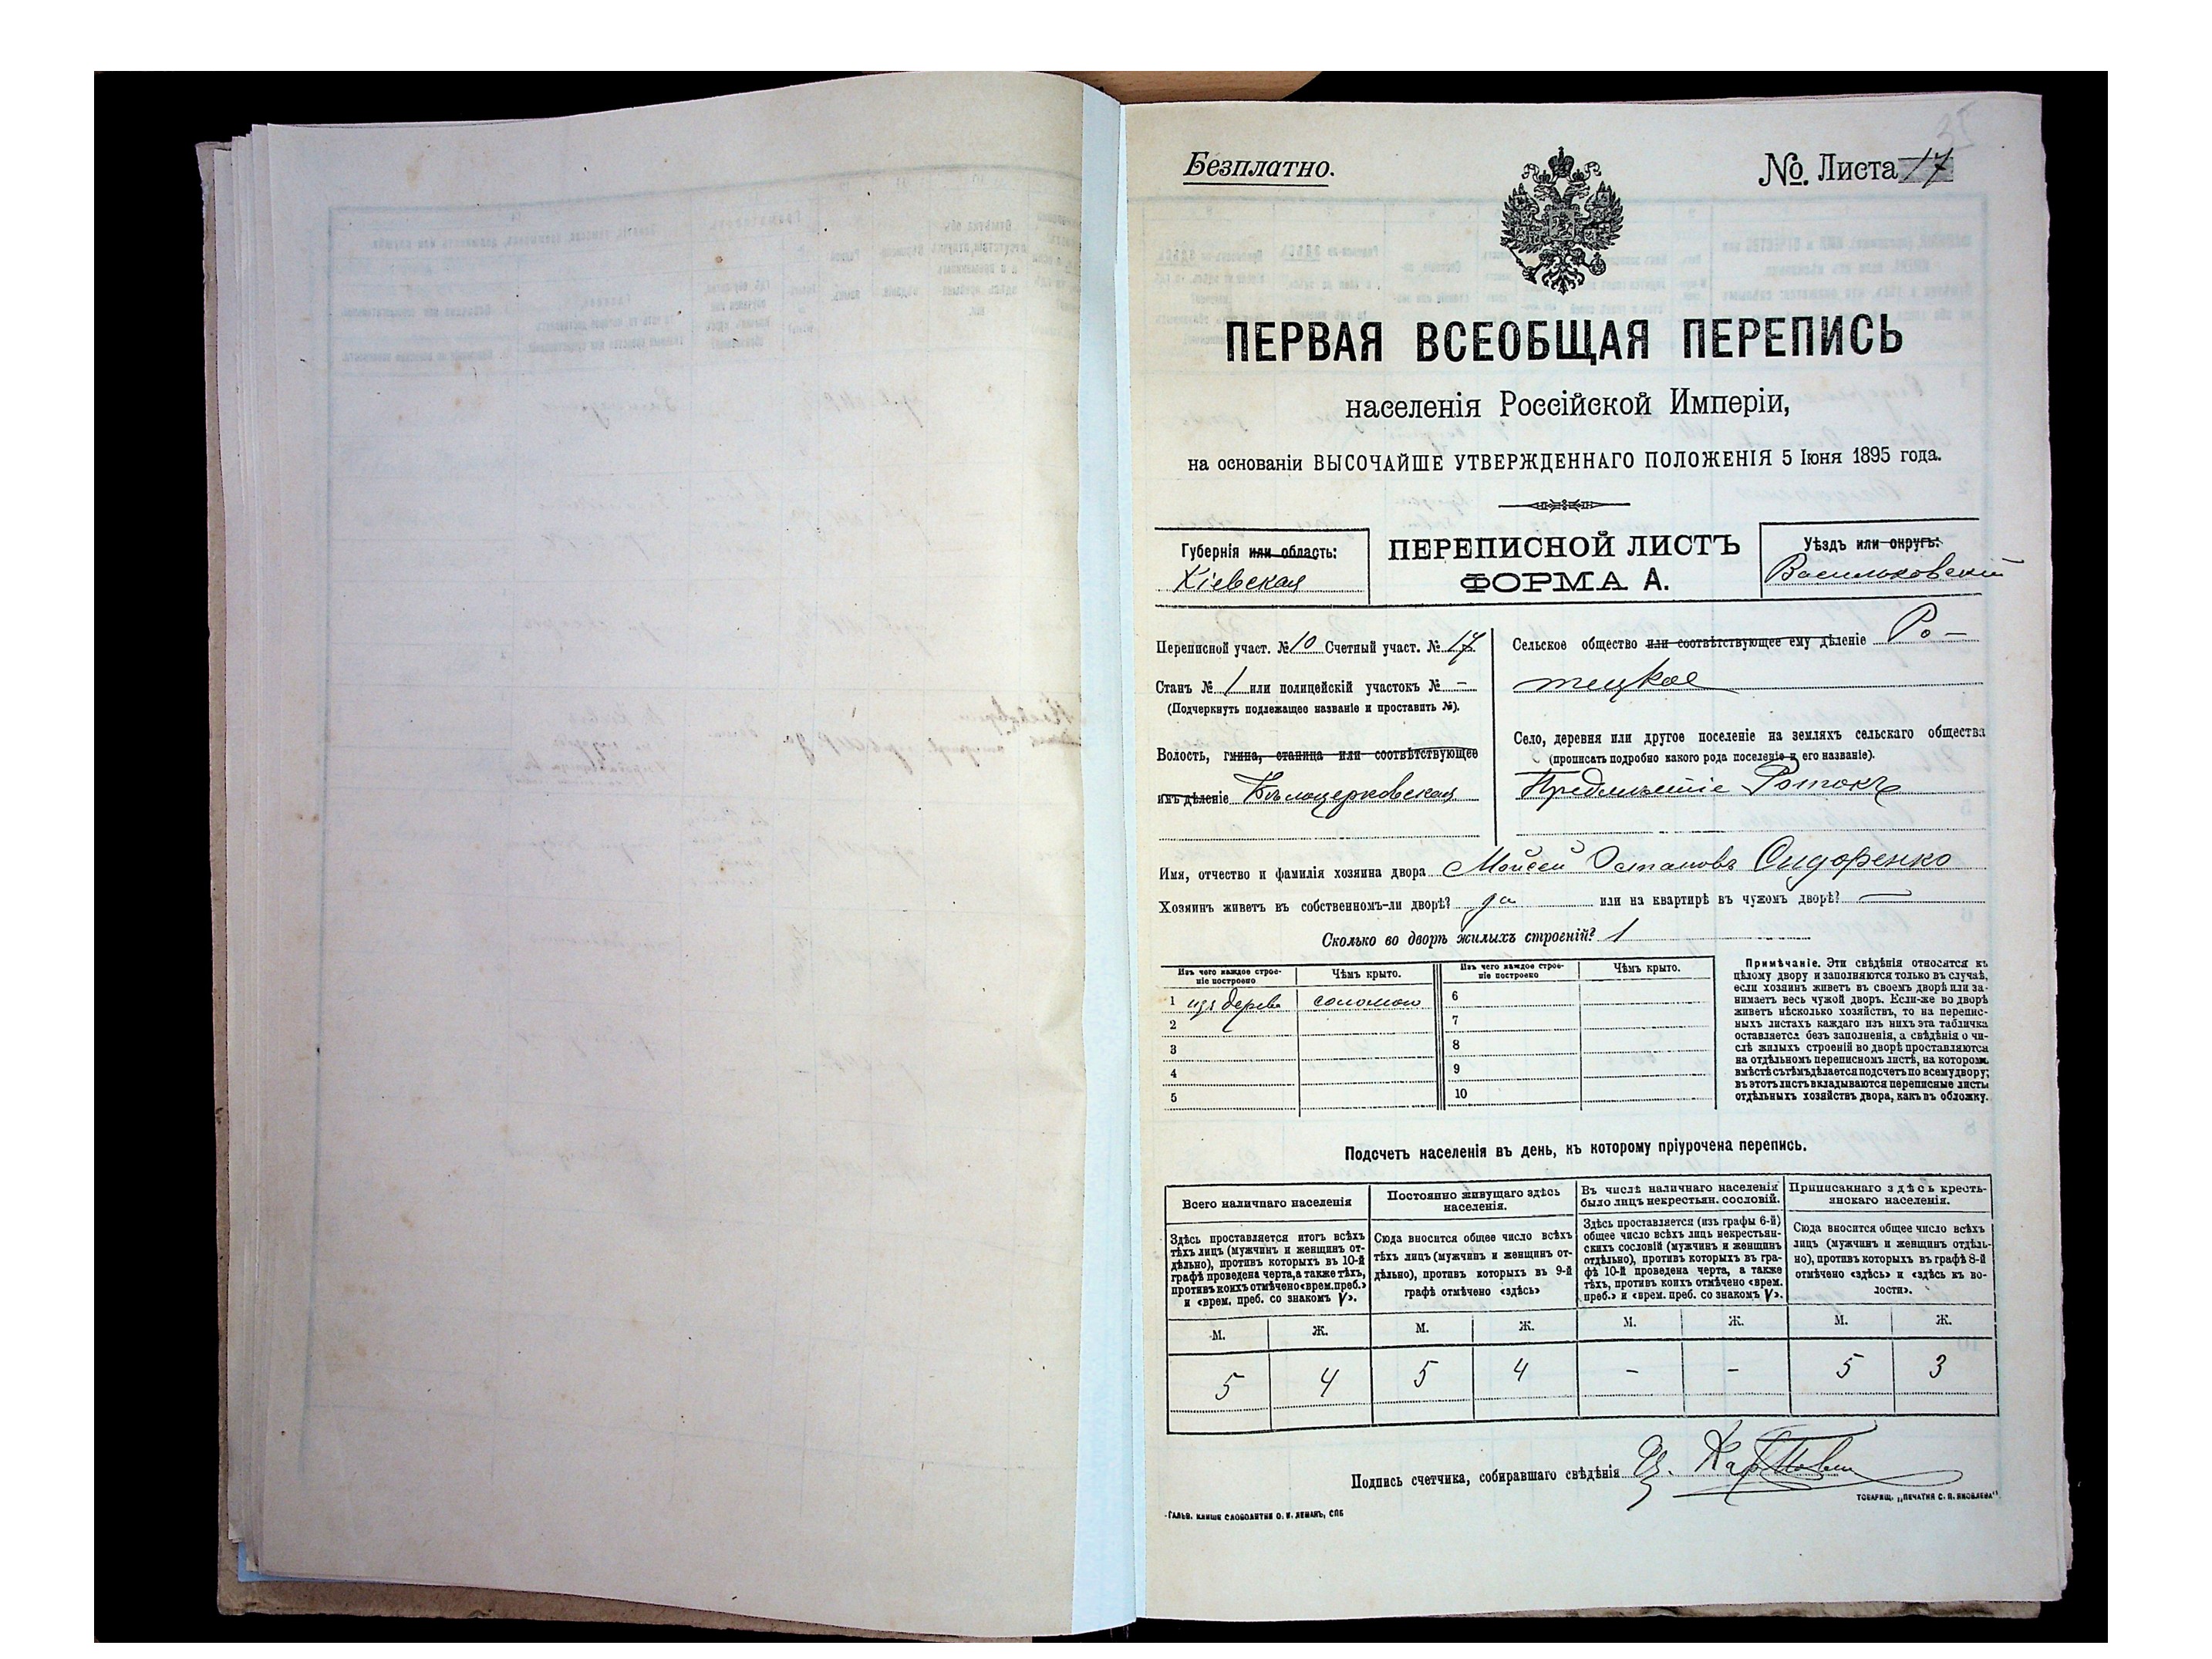 35
Безплатно.
№. Листа 17
ПЕРВАЯ ВСЕОБЩАЯ ПЕРЕПИСЬ
населенія Россійской Имперіи,
на основаніи ВЫСОЧАЙШЕ УТВЕРЖДЕННАГО ПОЛОЖЕНІЯ 5 Іюня 1895 года.
Губернія или область:
Кіевская
ПЕРЕПИСНОЙ ЛИСТЪ
ФОРМА А.
Уѣздъ или округъ:
Васильковскій
Переписной участ. № 10 Счетный участ. № 17
Станъ № 1 или полицейскій участокъ № –
(Подчеркнуть подлежащее названіе и проставить №).
Волость, гмина, станица или соотвѣтствующее
имъ дѣленіе Бѣлоцерковская
Сельское общество или соотвѣтствующее ему дѣленіе Ро-
тецкое
Село, деревня или другое поселеніе на земляхъ сельскаго общества
(прописать подробно какого рода поселеніе и его названіе).
Предмѣстіе Ротокъ
Имя, отчество и фамилія хозяина двора Мойсей Остаповъ Сидоренко
Хозяинъ живетъ въ собственномъ-ли дворѣ? да или на квартирѣ въ чужомъ дворѣ? —
Сколько во дворѣ жилыхъ строеній? 1
Изъ чего каждое строе-
ніе построено
Чѣмъ крыто.
Изъ чего каждое строе-
ніе построено
Чѣмъ крыто.
1 изъ дерева соломою 6
2 7
3 8
4 9
5 10
Примѣчаніе. Эти свѣдѣнія относятся къ
цѣлому двору и заполняются только въ случаѣ,
если хозяинъ живетъ въ своемъ дворѣ или за-
нимаетъ весь чужой дворъ. Если-же во дворѣ
живетъ нѣсколько хозяйствъ, то на перепис-
ныхъ листахъ каждаго изъ нихъ эта табличка
оставляется безъ заполненія, а свѣдѣнія о чи-
слѣ жилыхъ строеній во дворѣ проставляются
на отдѣльномъ переписномъ листѣ, на которомъ
вмѣстѣ съ тѣмъ дѣлается подсчетъ по всему двору;
въ этотъ листъ вкладываются переписные листы
отдѣльныхъ хозяйствъ двора, какъ въ обложку.
Подсчетъ населенія въ день, къ которому пріурочена перепись.
Всего наличнаго населенія
Здѣсь проставляется итогъ всѣхъ
тѣхъ лицъ (мужчинъ и женщинъ от-
дѣльно), противъ которыхъ въ 10-й
графѣ проведена черта, а также тѣхъ,
противъ коихъ отмѣчено «врем. преб.»
и «врем. преб. со знакомъ V».
Постоянно живущаго здѣсь
населенія.
Сюда вносится общее число всѣхъ
тѣхъ лицъ (мужчинъ и женщинъ от-
дѣльно), противъ которыхъ въ 9-й
графѣ отмѣчено «здѣсь»
Въ числѣ наличнаго населенія
было лицъ некрестьян. сословій.
Здѣсь проставляется (изъ графы 6-й)
общее число всѣхъ лицъ некрестьян-
скихъ сословій (мужчинъ и женщинъ
отдѣльно), противъ которыхъ въ гра-
фѣ 10-й проведена черта, а также
тѣхъ, противъ коихъ отмѣчено «врем.
преб.» и «врем. преб. со знакомъ V».
Приписаннаго здѣсь кресть-
янскаго населенія.
Сюда вносится общее число всѣхъ
лицъ (мужчинъ и женщинъ отдѣль-
но), противъ которыхъ въ графѣ 8-й
отмѣчено «здѣсь» и «здѣсь къ во-
лости».
М. Ж. М. Ж. М. Ж. М. Ж.
5 4 5 4 - - 5 3
Подпись счетчика, собиравшаго свѣдѣнія
ГАЛЬВ. КЛИШЕ СЛОВОЛИТНИ О. И. ЛЕМАНЪ, СПБ
ТОВАРИЩ. „ПЕЧАТНЯ С. П. ЯКОВЛЕВА“